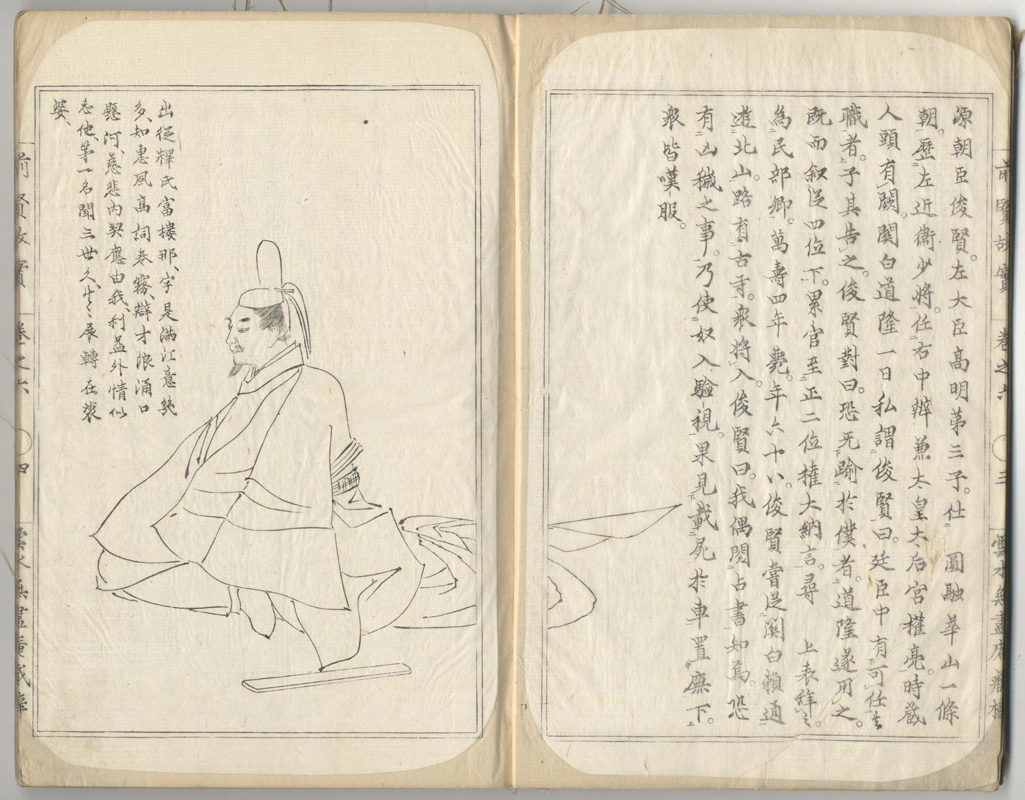 源朝臣俊賢。左大臣高明第三子。仕 圓融華山一條
朝。歷左近衞少將。任右中辨兼太皇太后宮權亮。時藏
人頭有闕。關白道隆一日私謂俊賢曰。廷臣中有可任
職者。子其告之。俊賢對曰。恐无踰於僕者。道隆遂用之。
既而叙從四位下。累官至正二位權大納言。尋 上表辭之。
爲民部卿。萬壽四年薨。年六十八。俊賢嘗從關白賴通
遊北山。路有古寺。衆將入。俊賢曰。我偶閱占書知焉。恐
有凶穢之事。乃使奴入驗視。果見載屍於車置廡下。
衆皆嘆服。
前賢故實 卷之六 〇三
出從釋氏富樓那、字是滿江意繞
多、知惠風高詞卷霧、辯才浪涌口
懸河、慈悲内契應由我、利益外情似
忘他、第一名聞三世久、展轉在裟
婆、
前賢故實 卷之六 〇四